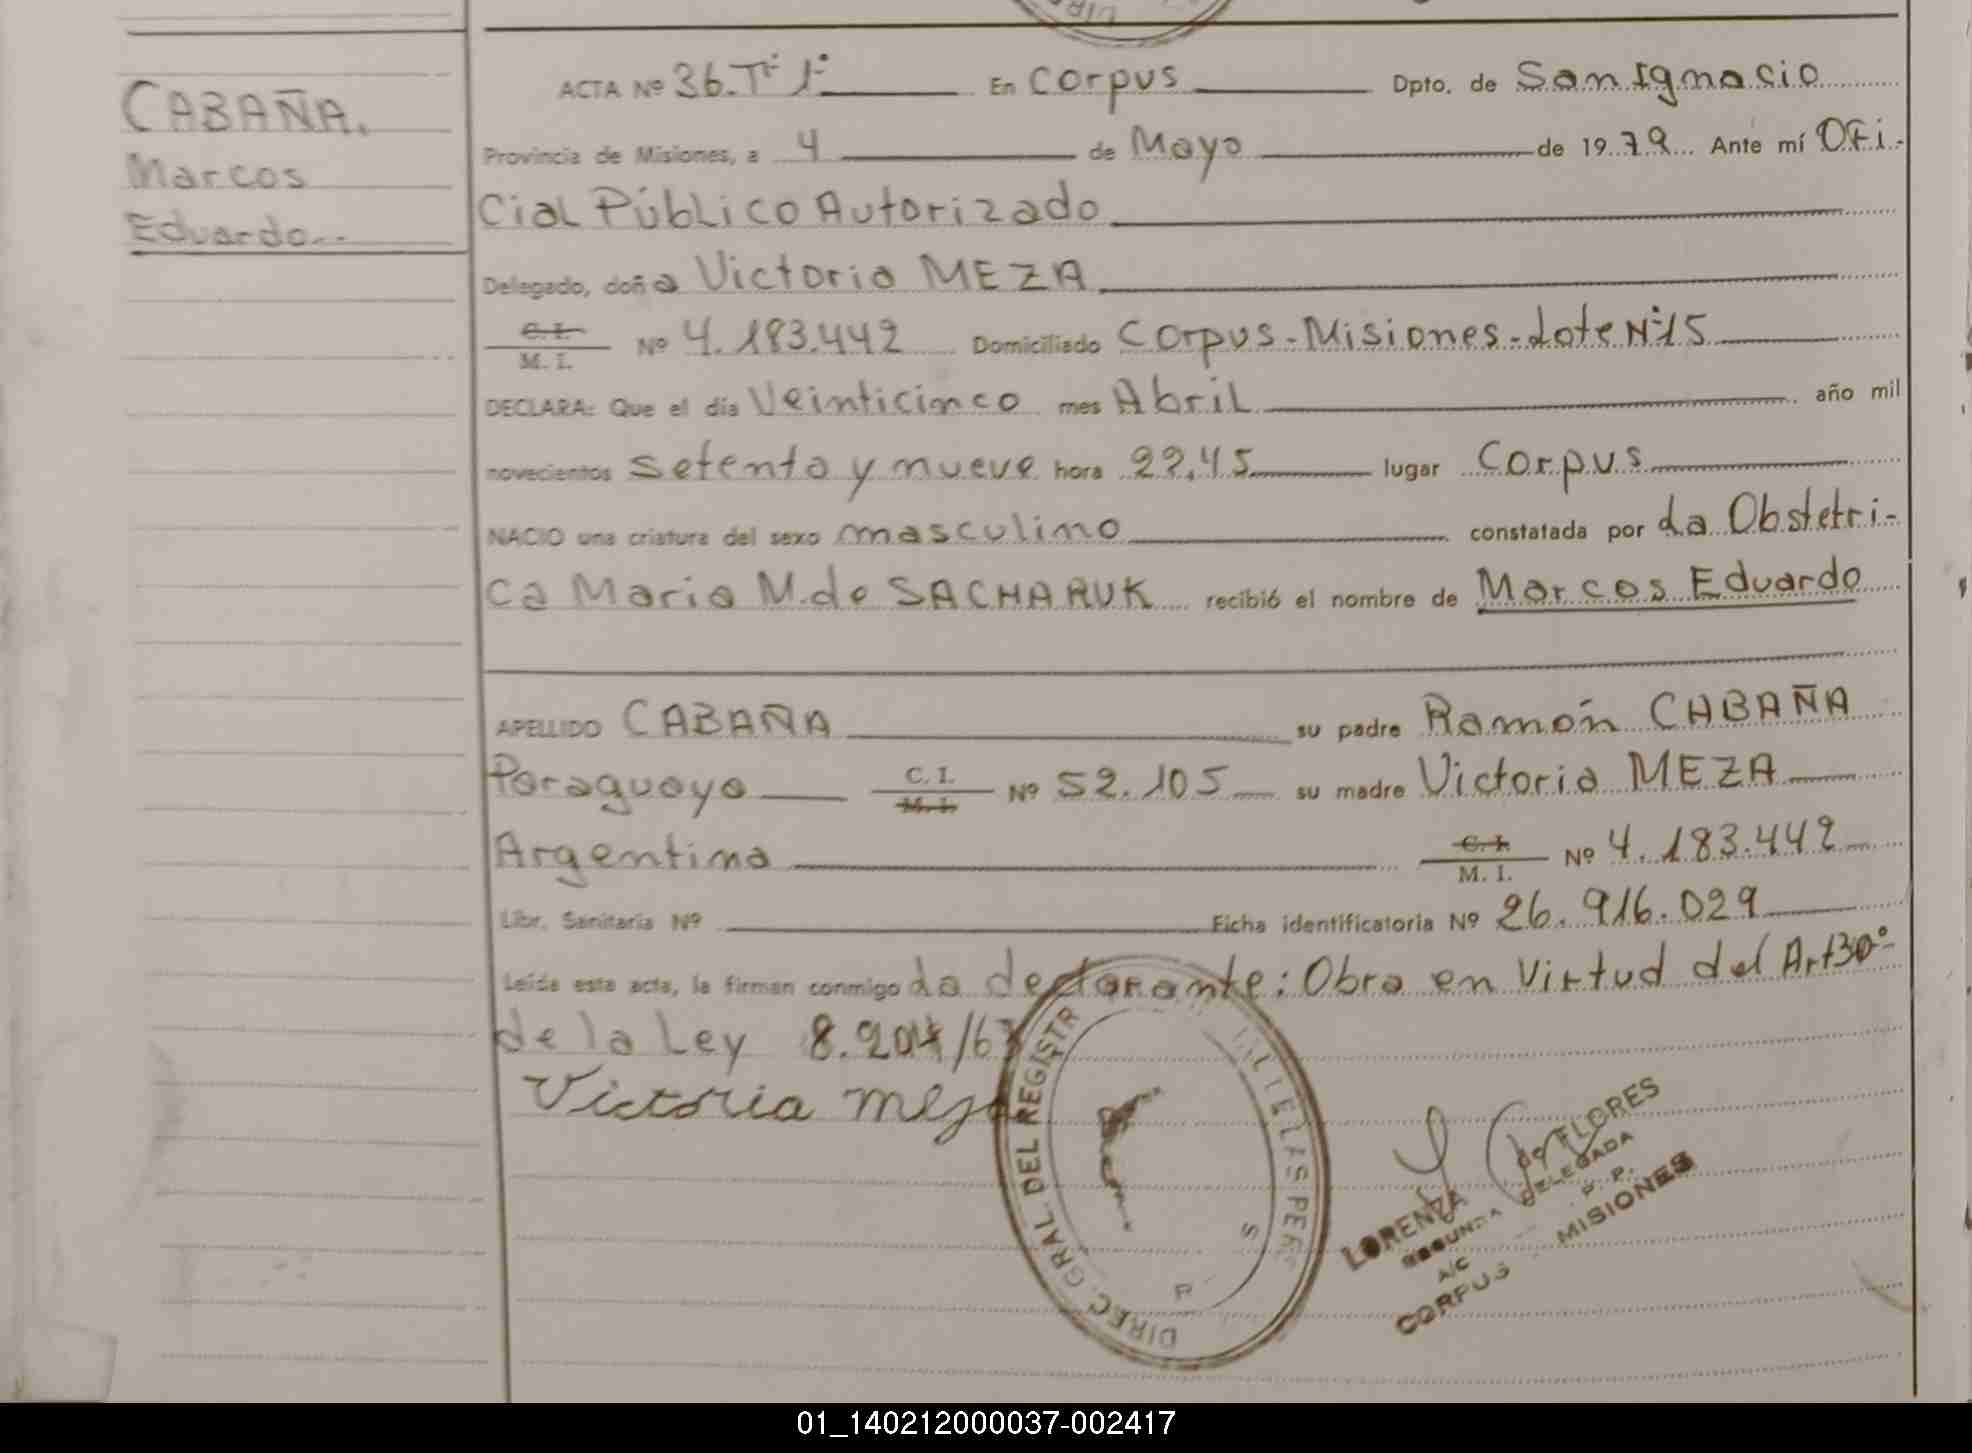 CABAÑA.
Marcos
Eduardo..
ACTA Nº 36. Tº 1º En Corpus Dpto. de San Ignacio
Provincia de Misiones, a 4 de Mayo de 1979 Ante mí OFi-
cial Público Autorizado
Delegado, doña Victoria MEZA
C. I.
M. I. Nº 4.183.442 Domiciliado Corpus-Misiones-Lote Nº 15
DECLARA: Que el día Veinticinco mes Abril año mil
novecientos setenta y nueve hora 22,45 lugar Corpus
NACIO una criatura del sexo masculino constatada por La Obstetri-
ca Maria M. de SACHARUK recibió el nombre de Marcos Eduardo
APELLIDO CABAÑA su padre Ramón CABAÑA
Paraguayo C. I. M. I. Nº 52.105 su madre Victoria MEZA
Argentina C. I. M. I. Nº 4.183.442
Libr. Sanitaria Nº Ficha identificatoria Nº 26.916.029
Leída esta acta, la firman conmigo La declarante: Obra en Virtud del Art 30º
de la Ley 8.204/63
Victoria meza
DIREC. GRAL. DEL REGISTR
LORENZA de FLORES
SEGUNDA DELEGADA
A/C P. P.
CORPUS - MISIONES
01_140212000037-002417